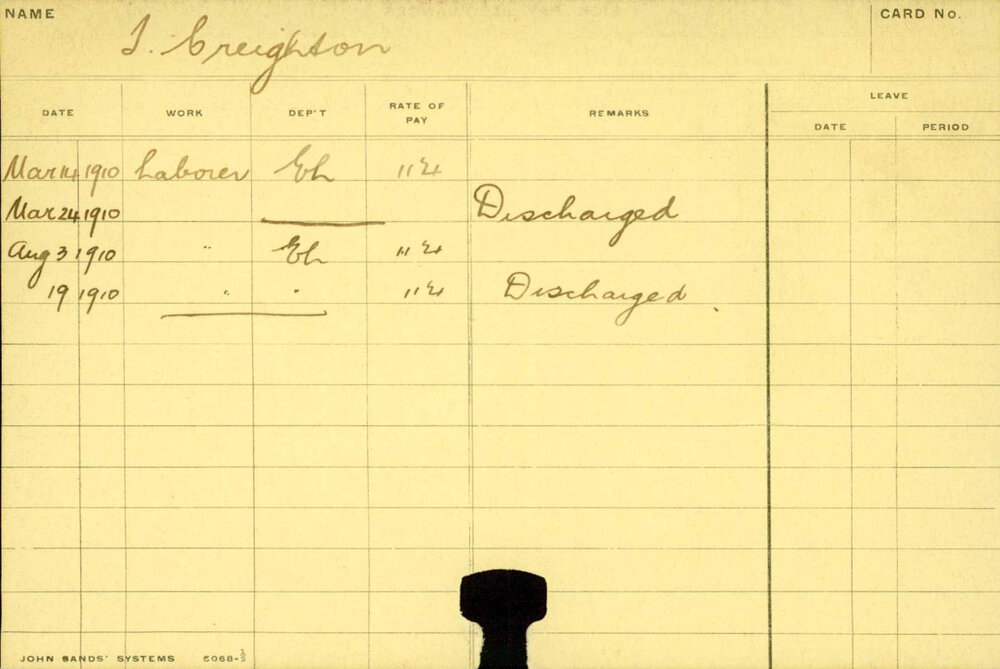 NAME
CARD No.
Creighton
LEAVE
DATE WORK DEP'T RATE OF PAY REMARKS DATE PERIOD
Mar 14 1910 Laborer Eh
Mar 24 1910 Discharged
Aug 3 1910 " Eh
19 1910 " " Discharged
JOHN SANDS' SYSTEMS 5068-½